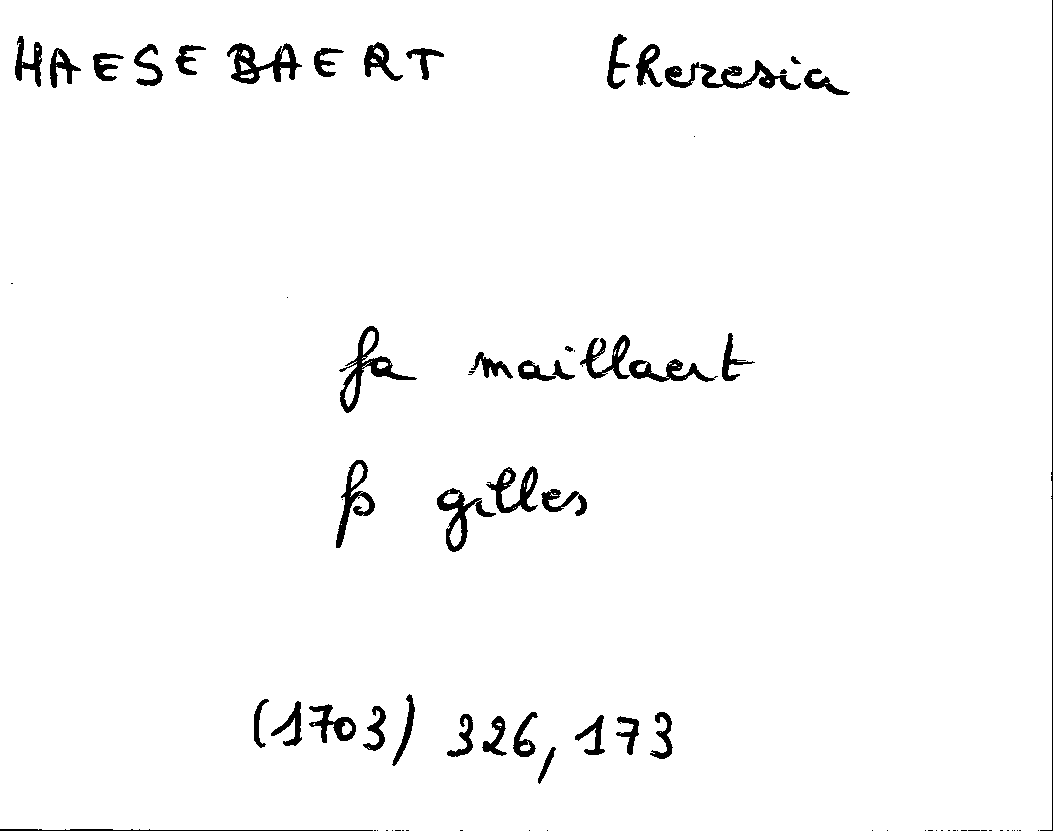 HAESEBAERT theresia
fa maillaert
fs gilles
(1703) 326, 173